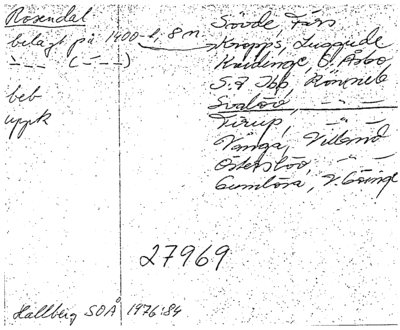 Rosendal
belagt på 1400-t, 8 m.
— " — ( — " — )
beb
uppk
Sövde, Färs
Kropps, Luggude
Kvidinge, Ö. Åsbo
S:t Ibb, Rönneb
Svalöv, — " —
Tirup, — " —
Vånga, Villand
Österslöv, — " —
Gumlösa, V. Göinge
27969
Hallberg SOÅ 1976:84